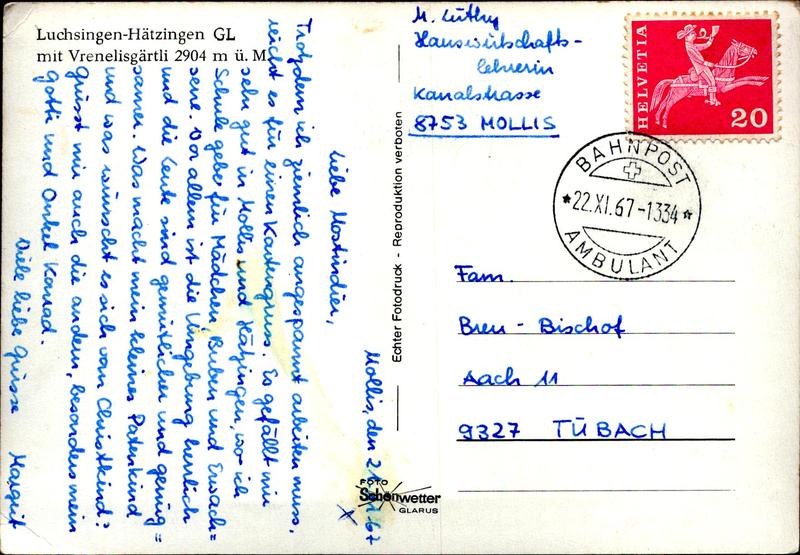 Luchsingen-Hätzingen GL
mit Vrenelisgärtli 2904 m ü. M.
Mollis, den 21. XI. 67
Liebe Mostindier,
Trotzdem ich ziemlich angespannt arbeiten muss,
reicht es für einen Kartengruss. Es gefällt mir
sehr gut in Mollis und Hätzingen, wo ich
Schule gebe für Mädchen, Buben und Erwach=
sene. Vor allem ist die Umgebung herrlich
und die Leute sind gemütlicher und genüg=
samer. Was macht mein kleines Patenkind
und was wünscht es sich vom Christkind?
Grüsst mir auch die andern, besonders mein
Gotti und Onkel Konrad.
Viele liebe Grüsse Margrit
Echter Fotodruck - Reproduktion verboten
FOTO
Schönwetter
GLARUS
M. Lüthy
Hauswirtschafts-
lehrerin
Kanalstrasse
8753 MOLLIS
HELVETIA
20
BAHNPOST
22.XI.67-1334
AMBULANT
Fam.
Breu - Bischof
Aach 11
9327 TÜBACH